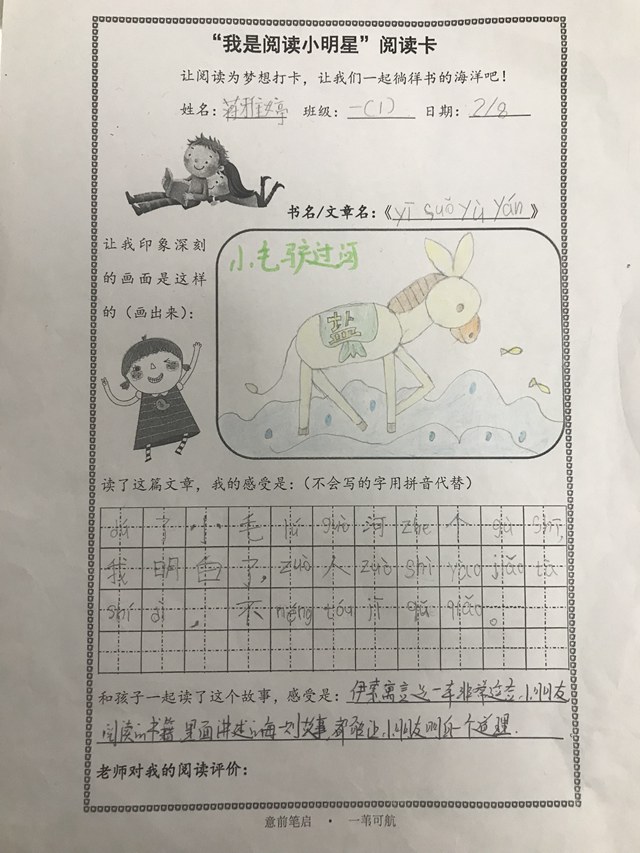 “我是阅读小明星”阅读卡
让阅读为梦想打卡，让我们一起徜徉书的海洋吧！
姓名：蒋雅婷 班级：一(1) 日期：2/8
书名/文章名：《yī suǒ yù yán》
让我印象深刻
的画面是这样
的（画出来）：
小毛驴过河
盐
读了这篇文章，我的感受是：（不会写的字用拼音代替）
dú 了 小 毛 lú guò 河 zhe 个 gù shì，
我 明 白 了，zuò 人 zuò shì yào jiǎo tà
shí dì ，不 néng tóu jī qǔ qiǎo。
和孩子一起读了这个故事，感受是：伊索寓言是一本非常适合小朋友
阅读的书籍，里面讲述的每一则故事，都能让小朋友明白一个道理.
老师对我的阅读评价：
意前笔启 · 一苇可航